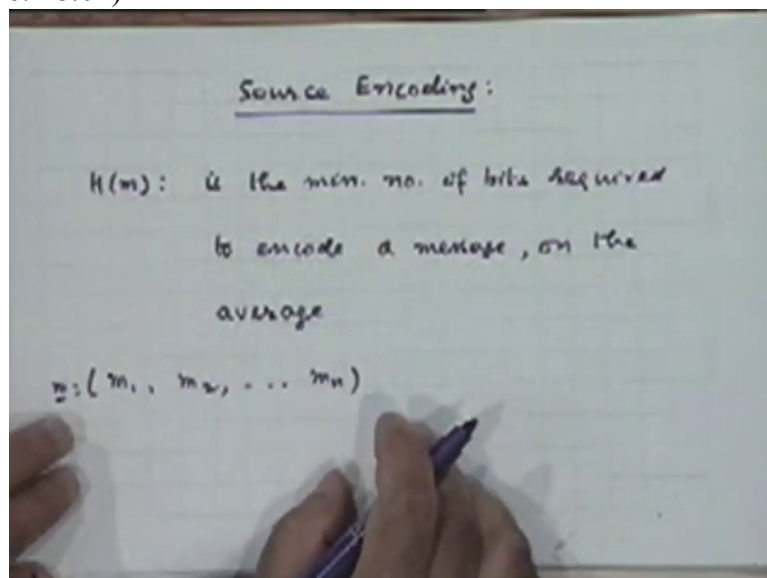 Source Encoding:
H(m): is the min. no. of bits required
to encode a message, on the
average
m: (m1, m2, ... mn)